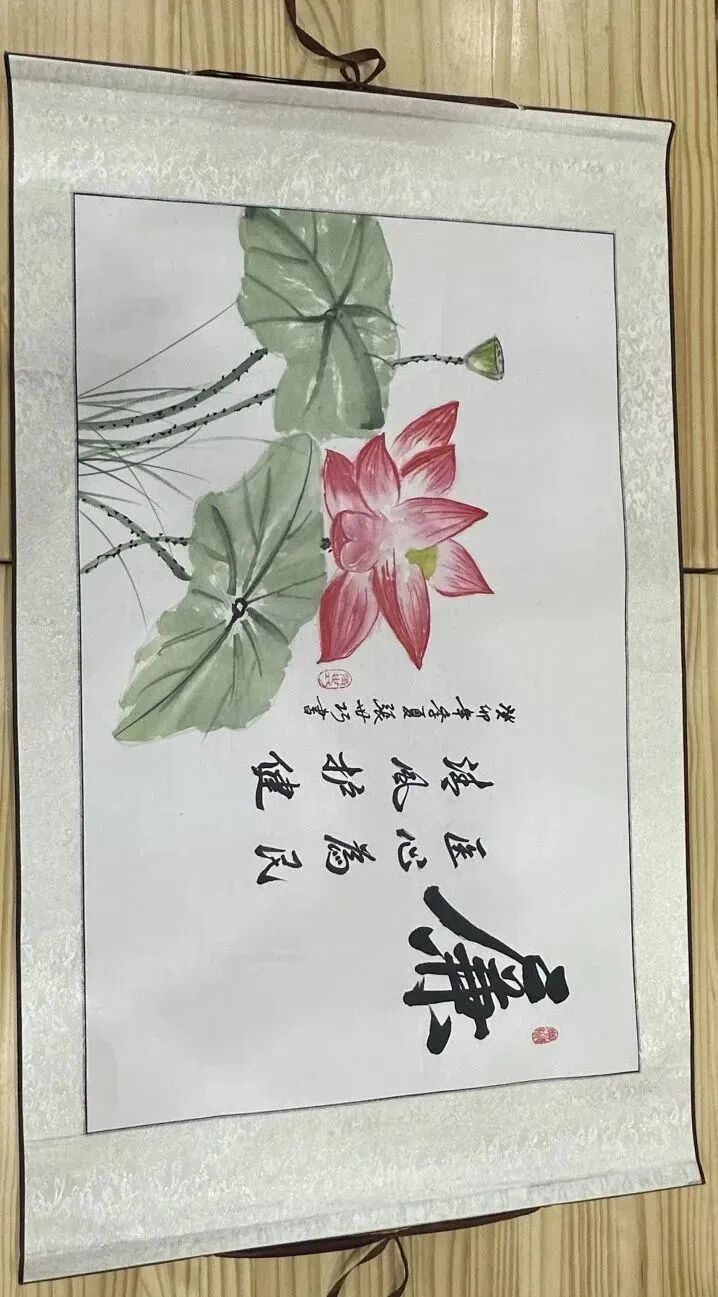 廉
医心為民
清风护健
癸卯年季夏張世巧書